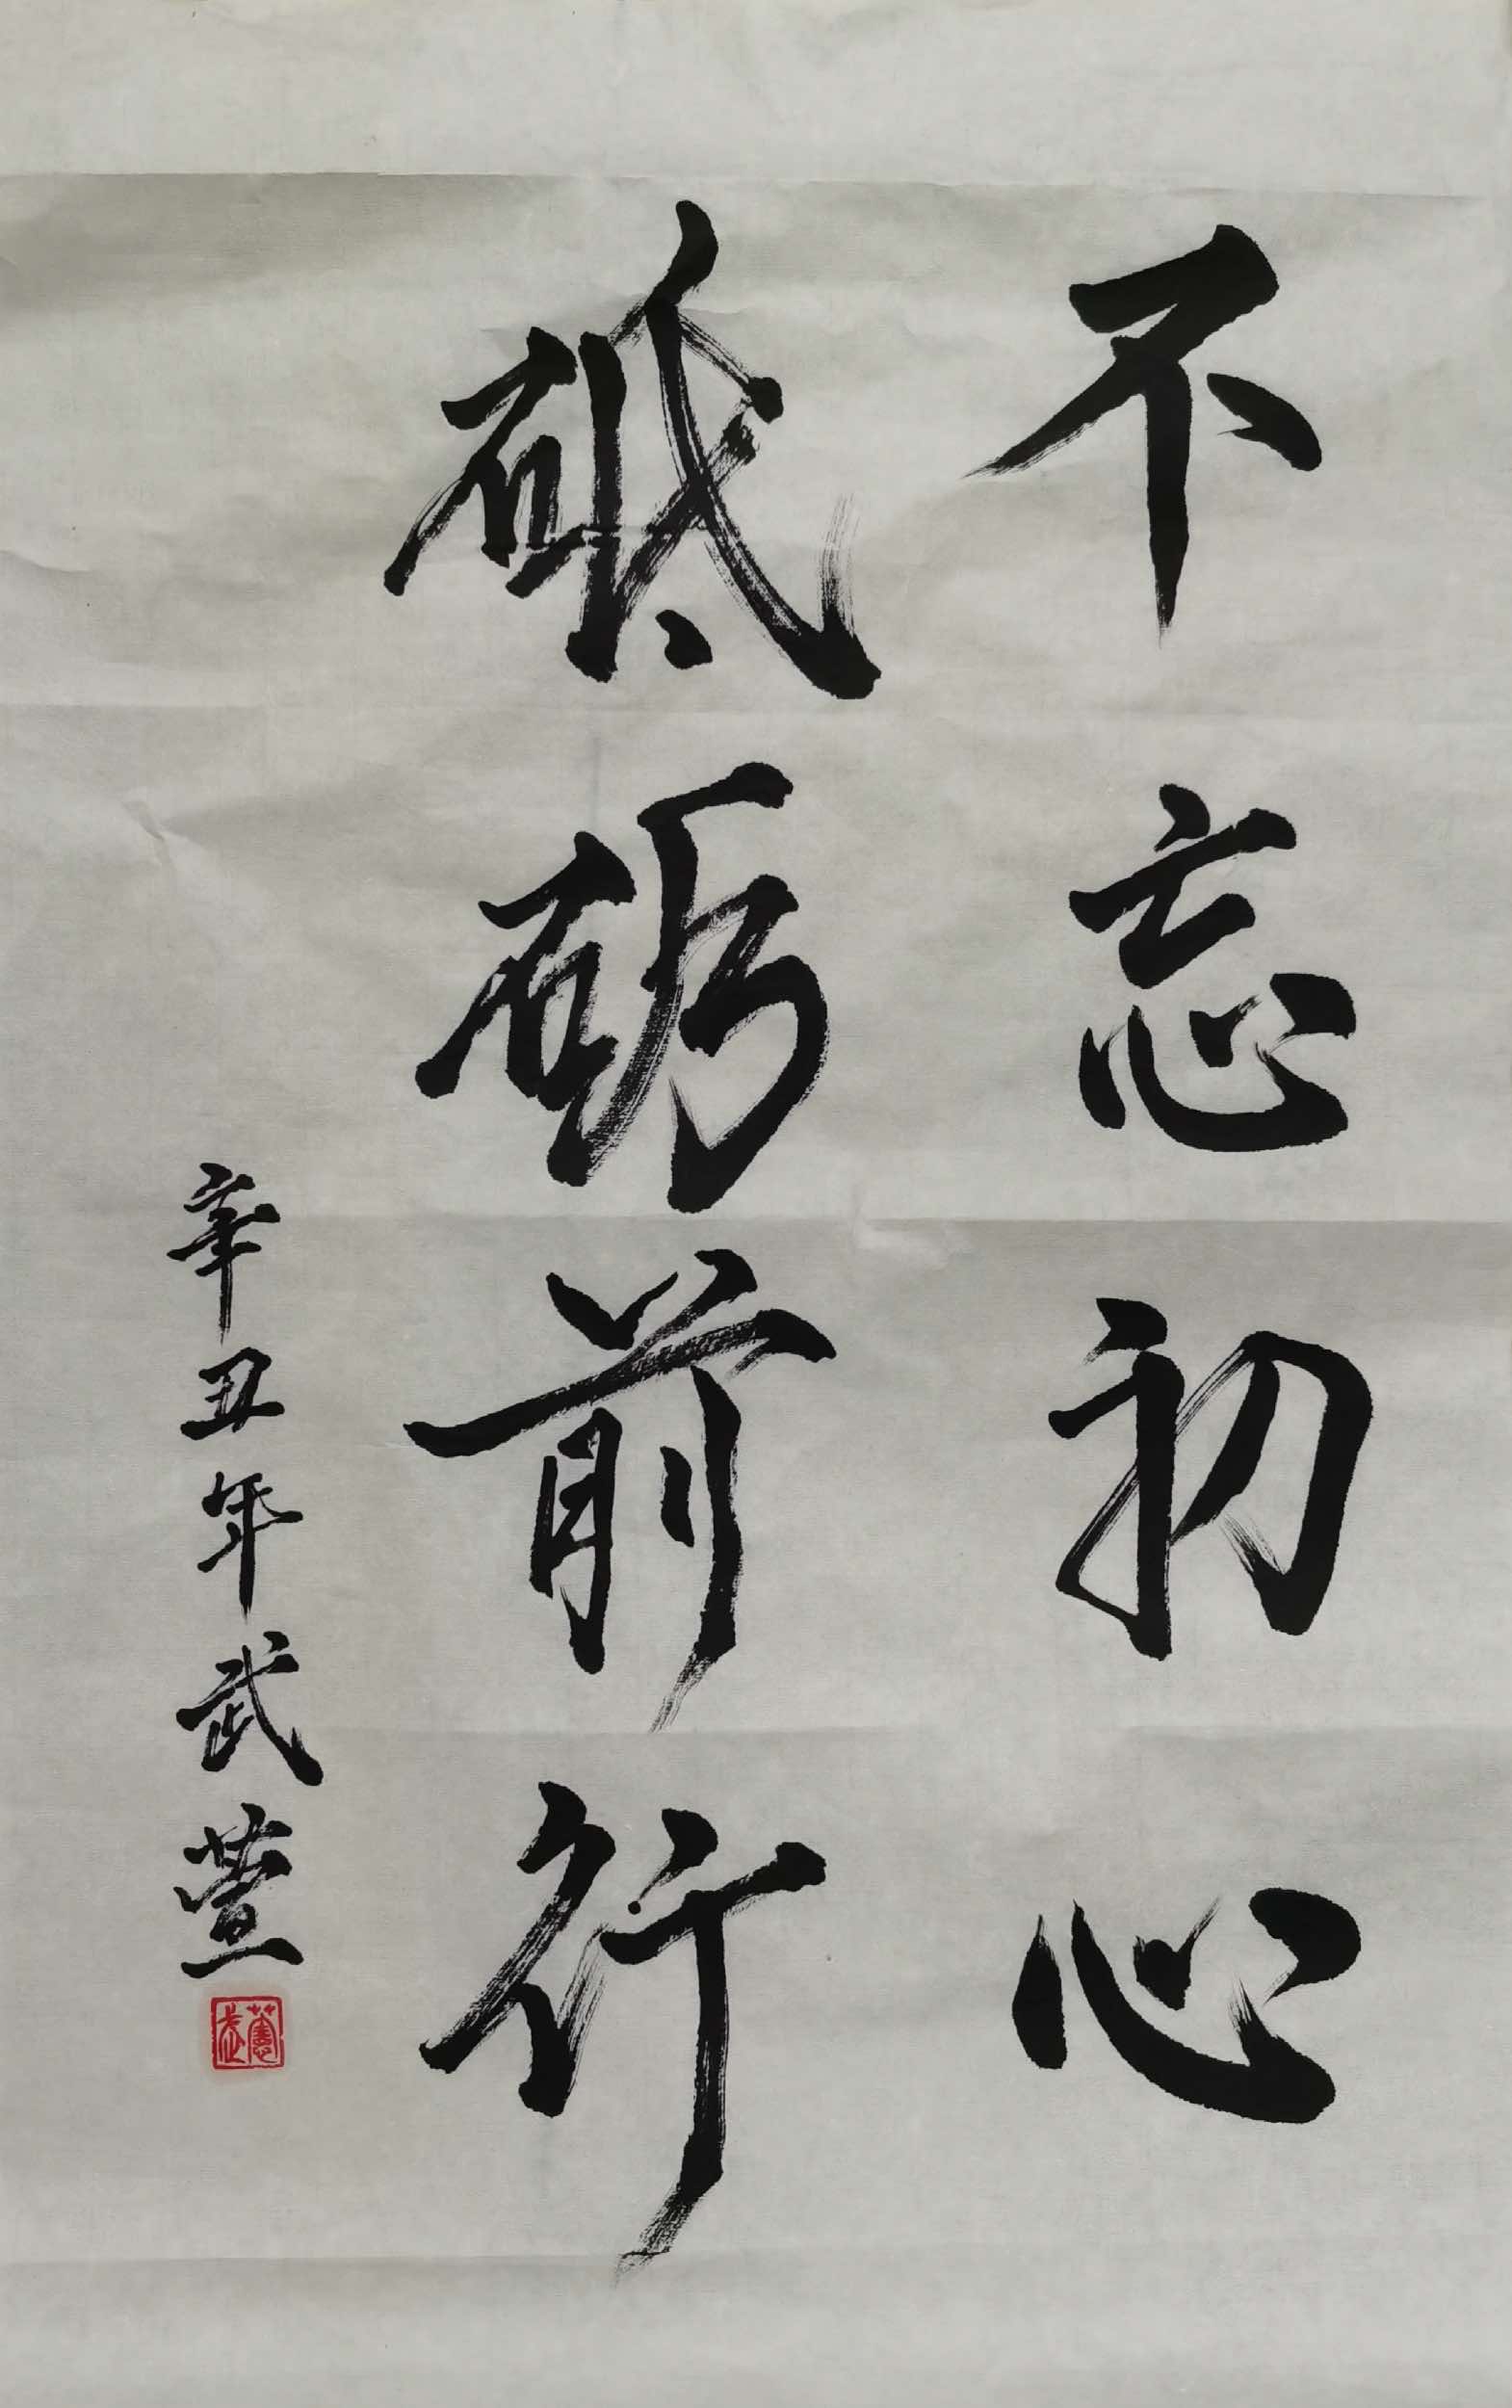 不忘初心
砥砺前行
辛丑年武萱